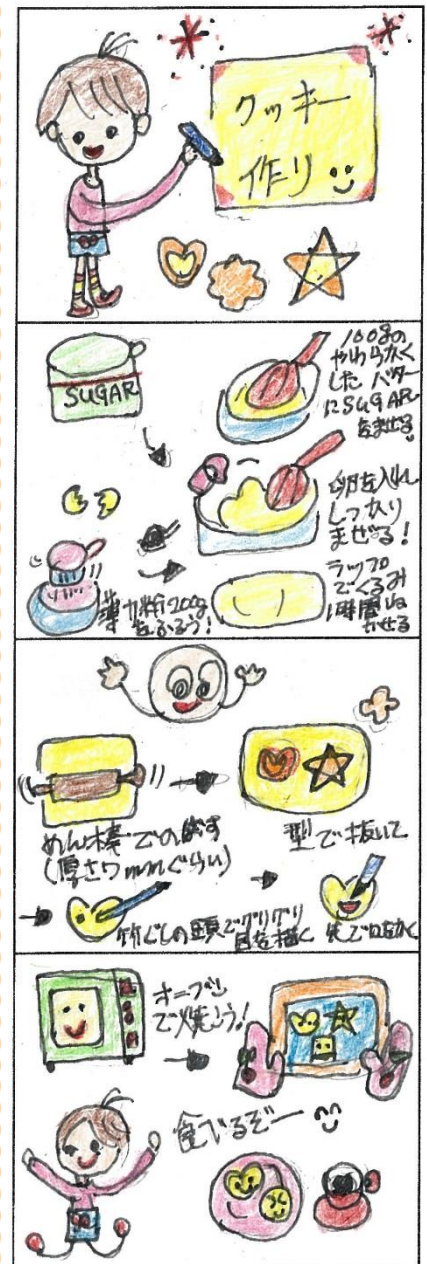 クッキー
作り
SUGAR
100gの
やわらかく
した バター
にSUGAR
をまぜる
卵を入れ
しっかり
まぜる!
薄力粉200g
をふるう!
ラップ
でくるみ
1時間ね
かせる
めん棒でのばす
(厚さ7mmぐらい)
型で抜いて
竹ぐしの頭でグリグリ
目を描く
先で口をかく
オーブン
で焼こう!
食べるぞー